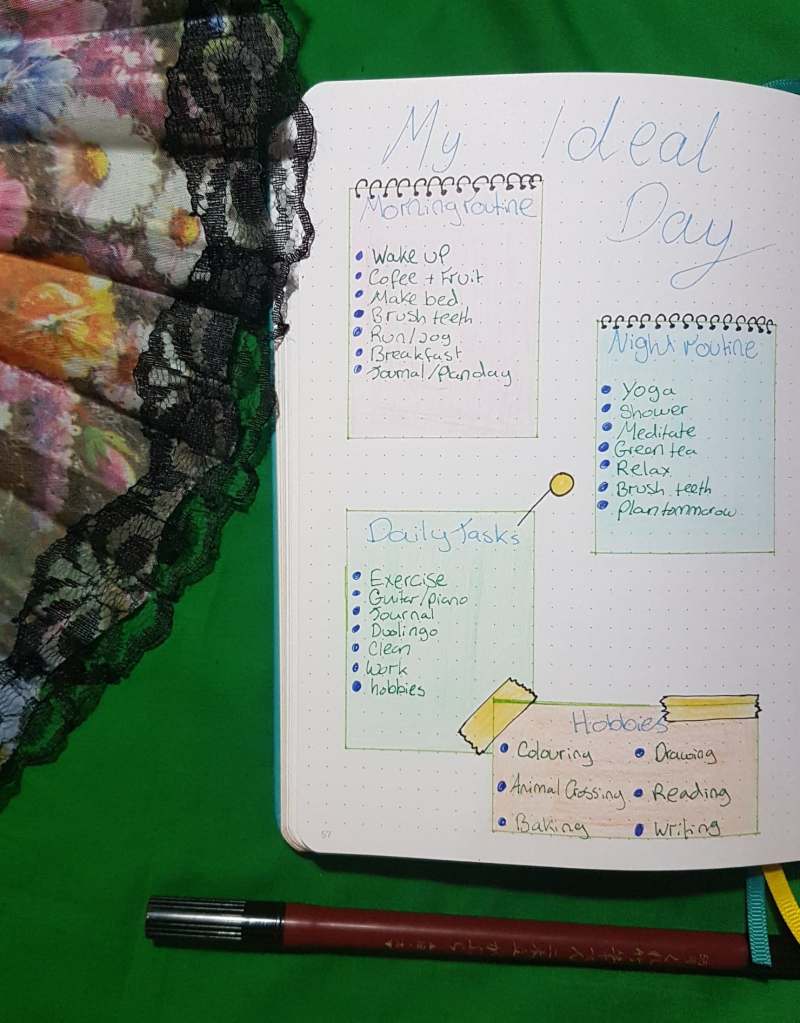 My Ideal
Day
Morning routine
Wake up
Cofee + Fruit
Make bed
Brush teeth
Run/Jog
Breakfast
Journal/Plan day
Night routine
Yoga
Shower
Meditate
Green tea
Relax
Brush teeth
Plan tommorow
Daily Tasks
Exercise
Guitar/piano
Journal
Duolingo
Clean
Work
hobbies
Hobbies
Colouring
Drawing
Animal Crossing
Reading
Baking
Writing
57